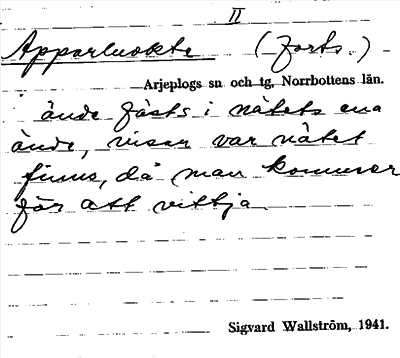 II
Apparluokte (forts.)
Arjeplogs sn och tg, Norrbottens län.
ände fästs i nätets ena
ände, visar var nätet
finns, då man kommer
för att vittja
Sigvard Wallström, 1941.